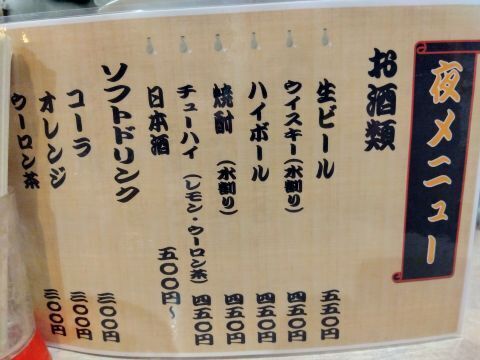 夜メニュー
お酒類
生ビール 五五〇円
ウイスキー(水割り) 四五〇円
ハイボール 四五〇円
焼酎(水割り) 四五〇円
チューハイ(レモン・ウーロン茶) 四五〇円
日本酒 五〇〇円〜
ソフトドリンク
コーラ 三〇〇円
オレンジ 三〇〇円
ウーロン茶 三〇〇円